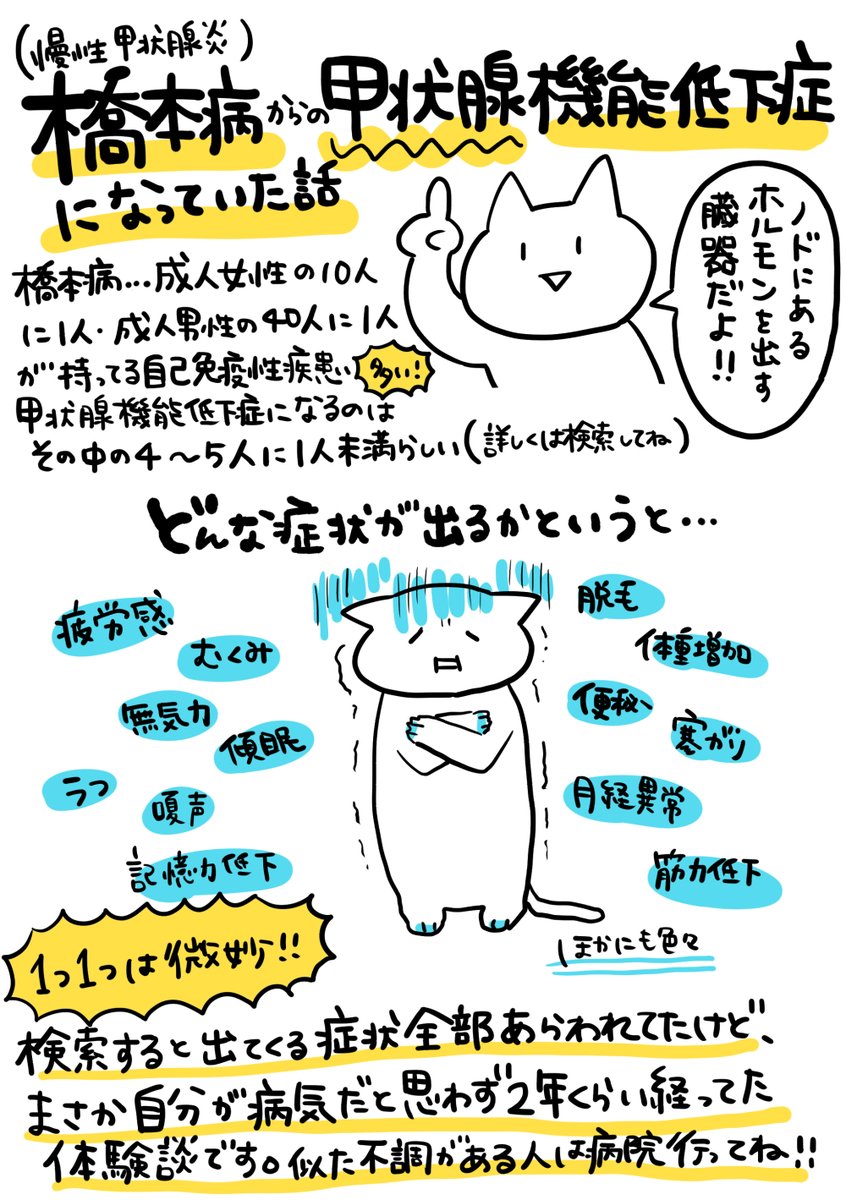 (慢性甲状腺炎)
橋本病からの甲状腺機能低下症
になっていた話
ノドにある
ホルモンを出す
臓器だよ!!
橋本病...成人女性の10人
に1人・成人男性の40人に1人
が持ってる自己免疫性疾患
多い!
甲状腺機能低下症になるのは
その中の4〜5人に1人未満らしい(詳しくは検索してね)
どんな症状が出るかというと…
疲労感
むくみ
無気力
傾眠
うつ
嗄声
記憶力低下
脱毛
体重増加
便秘
寒がり
月経異常
筋力低下
ほかにも色々
1つ1つは微妙!!
検索すると出てくる症状全部あらわれてたけど、
まさか自分が病気だと思わず2年くらい経ってた
体験談です。似た不調がある人は病院行ってね!!